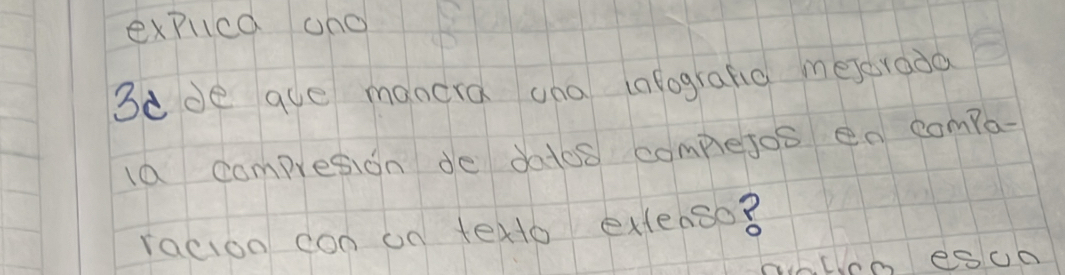 explica uno
3¿ de que manera una infografia mejorada
la compresión de datos complejos en compa-
racion con un texto extenso?
es un